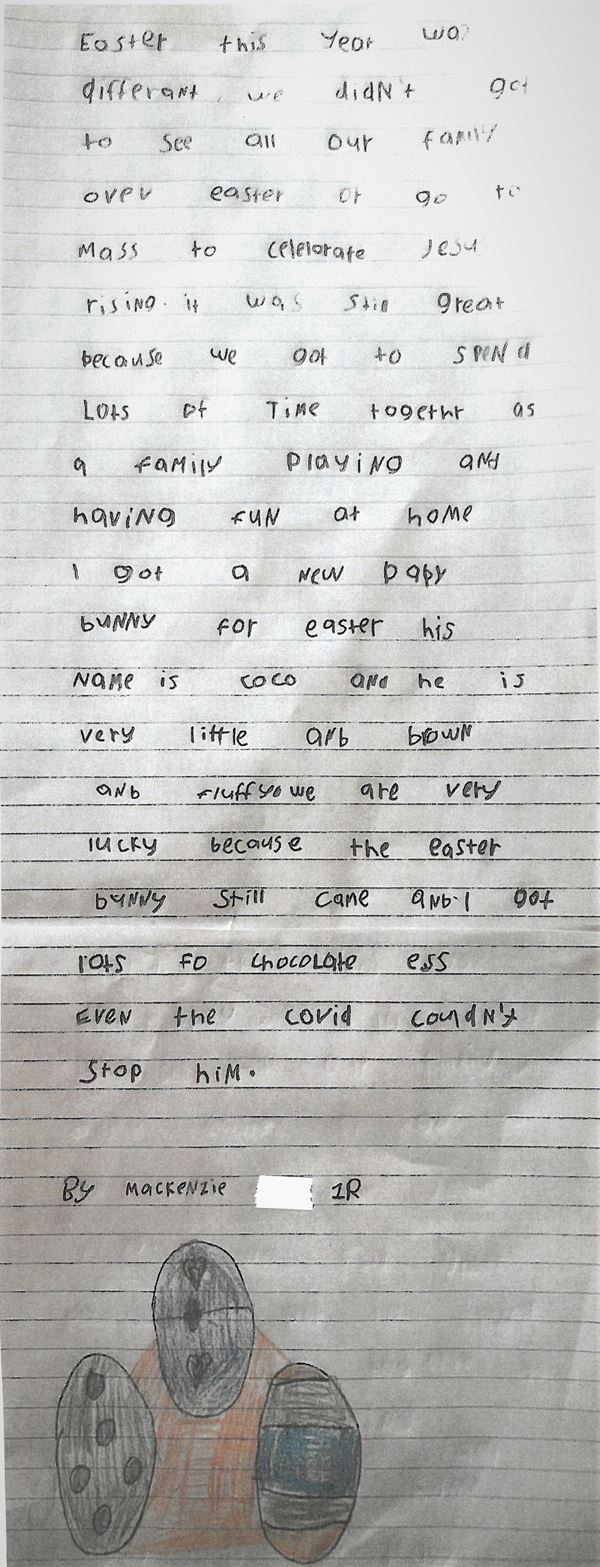 Easter this Year was
differant, we didN't get
to see all our family
over easter or go to
Mass to celelorate Jesu
rising. it was still great
because we got to SPeNd
Lots of Time togethr as
a faMily PlayiNg aNd
haviNg fuN at hoMe
I got a New baby
buNNy for easter his
NaMe is coco aNd he is
very little aNb browN
aNb fluffy. we are very
lucky because the easter
buNNy Still cane aNb. I got
lots fo chocoLate ess
EveN the covid couldN't
Stop hiM.
By MacKeNzie 1R